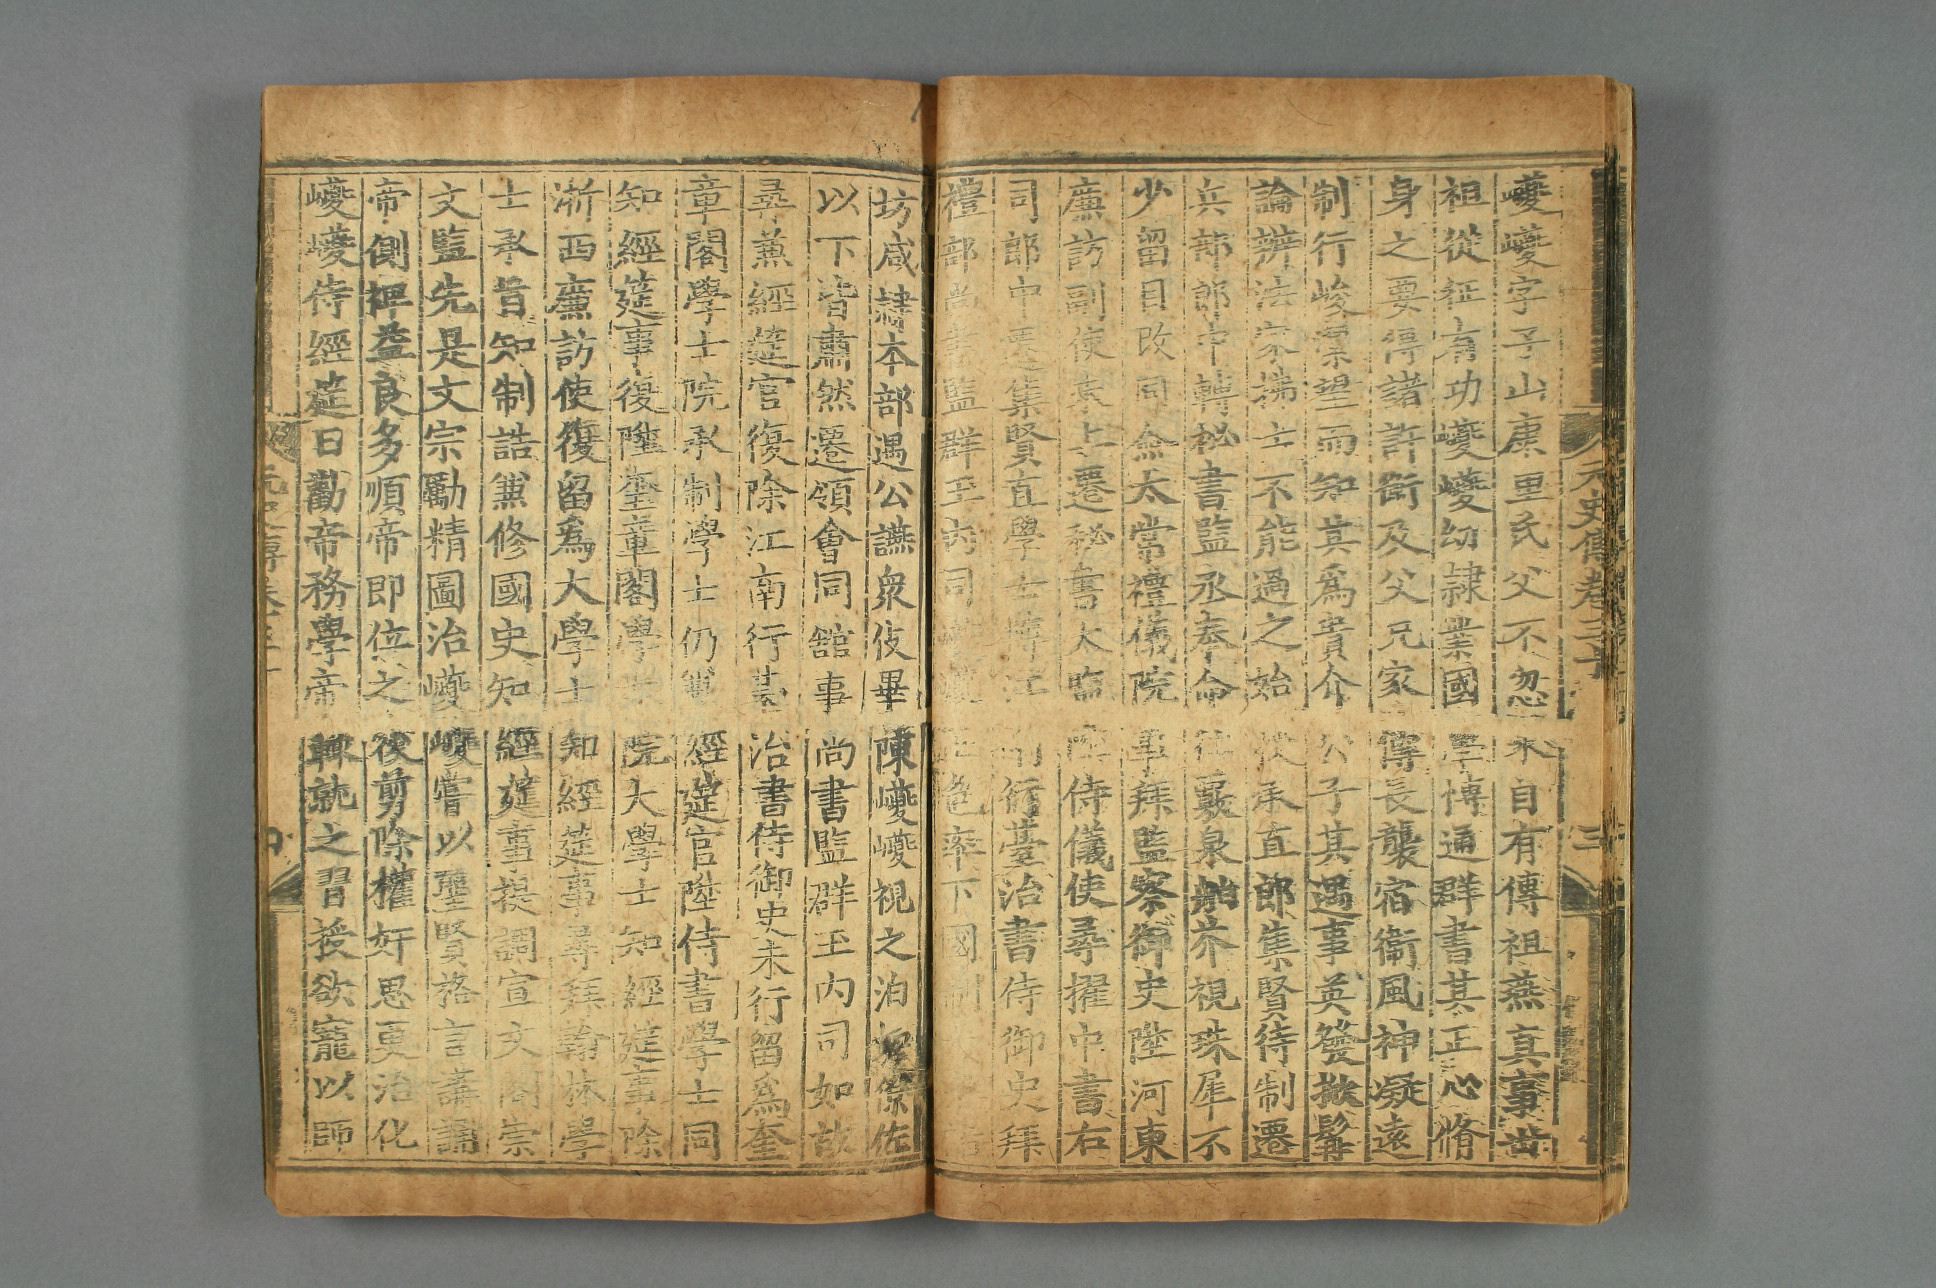 元史傳卷三十
三
巎巎字子山康里氏父不忽木自有傳祖燕真事
祖從征有功巎巎幼隸業國學博通群書其正心脩
身之要得諸許衡及父兄家傳長襲宿衛風神凝遠
制行峻潔望而知其爲貴介公子其遇事英發掀髯
論辨法家拂士不能過之始授承直郎集賢待制遷
兵部郎中轉秘書監丞奉命往覈泉舶芥視珠犀不
少留目改同僉太常禮儀院事拜監察御史陞河東
廉訪副使未上遷秘書太監陞侍儀使尋擢中書右
司郎中遷集賢直學士轉江南行臺治書侍御史拜
禮部尚書監群玉內司巎巎正色率下國制
坊咸隸本部遇公讌衆伎畢陳巎巎視之泊如僚佐
以下皆肅然遷領會同館事尚書監群玉內司如故
尋兼經筵官復除江南行臺治書侍御史未行留爲奎
章閣學士院承制學士仍兼經筵官陞侍書學士同
知經筵事復陞奎章閣學士院大學士知經筵事除
浙西廉訪使復留爲大學士知經筵事尋拜翰林學
士承旨知制誥兼修國史知經筵事提調宣文閣崇
文監先是文宗勵精圖治巎巎嘗以聖賢格言講誦
帝側裨益良多順帝即位之後剪除權奸思更治化
巎巎侍經筵日勸帝務學帝輒就之習授欲寵以師
元史傳卷三十
四